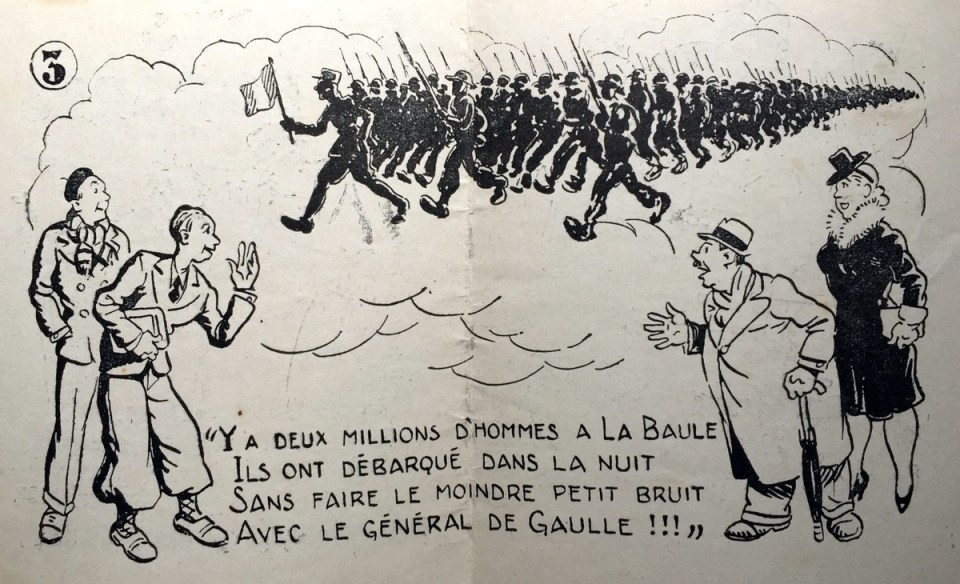 3
“Y A DEUX MILLIONS D'HOMMES A LA BAULE
ILS ONT DÉBARQUÉ DANS LA NUIT
SANS FAIRE LE MOINDRE PETIT BRUIT
AVEC LE GÉNÉRAL DE GAULLE !!!„